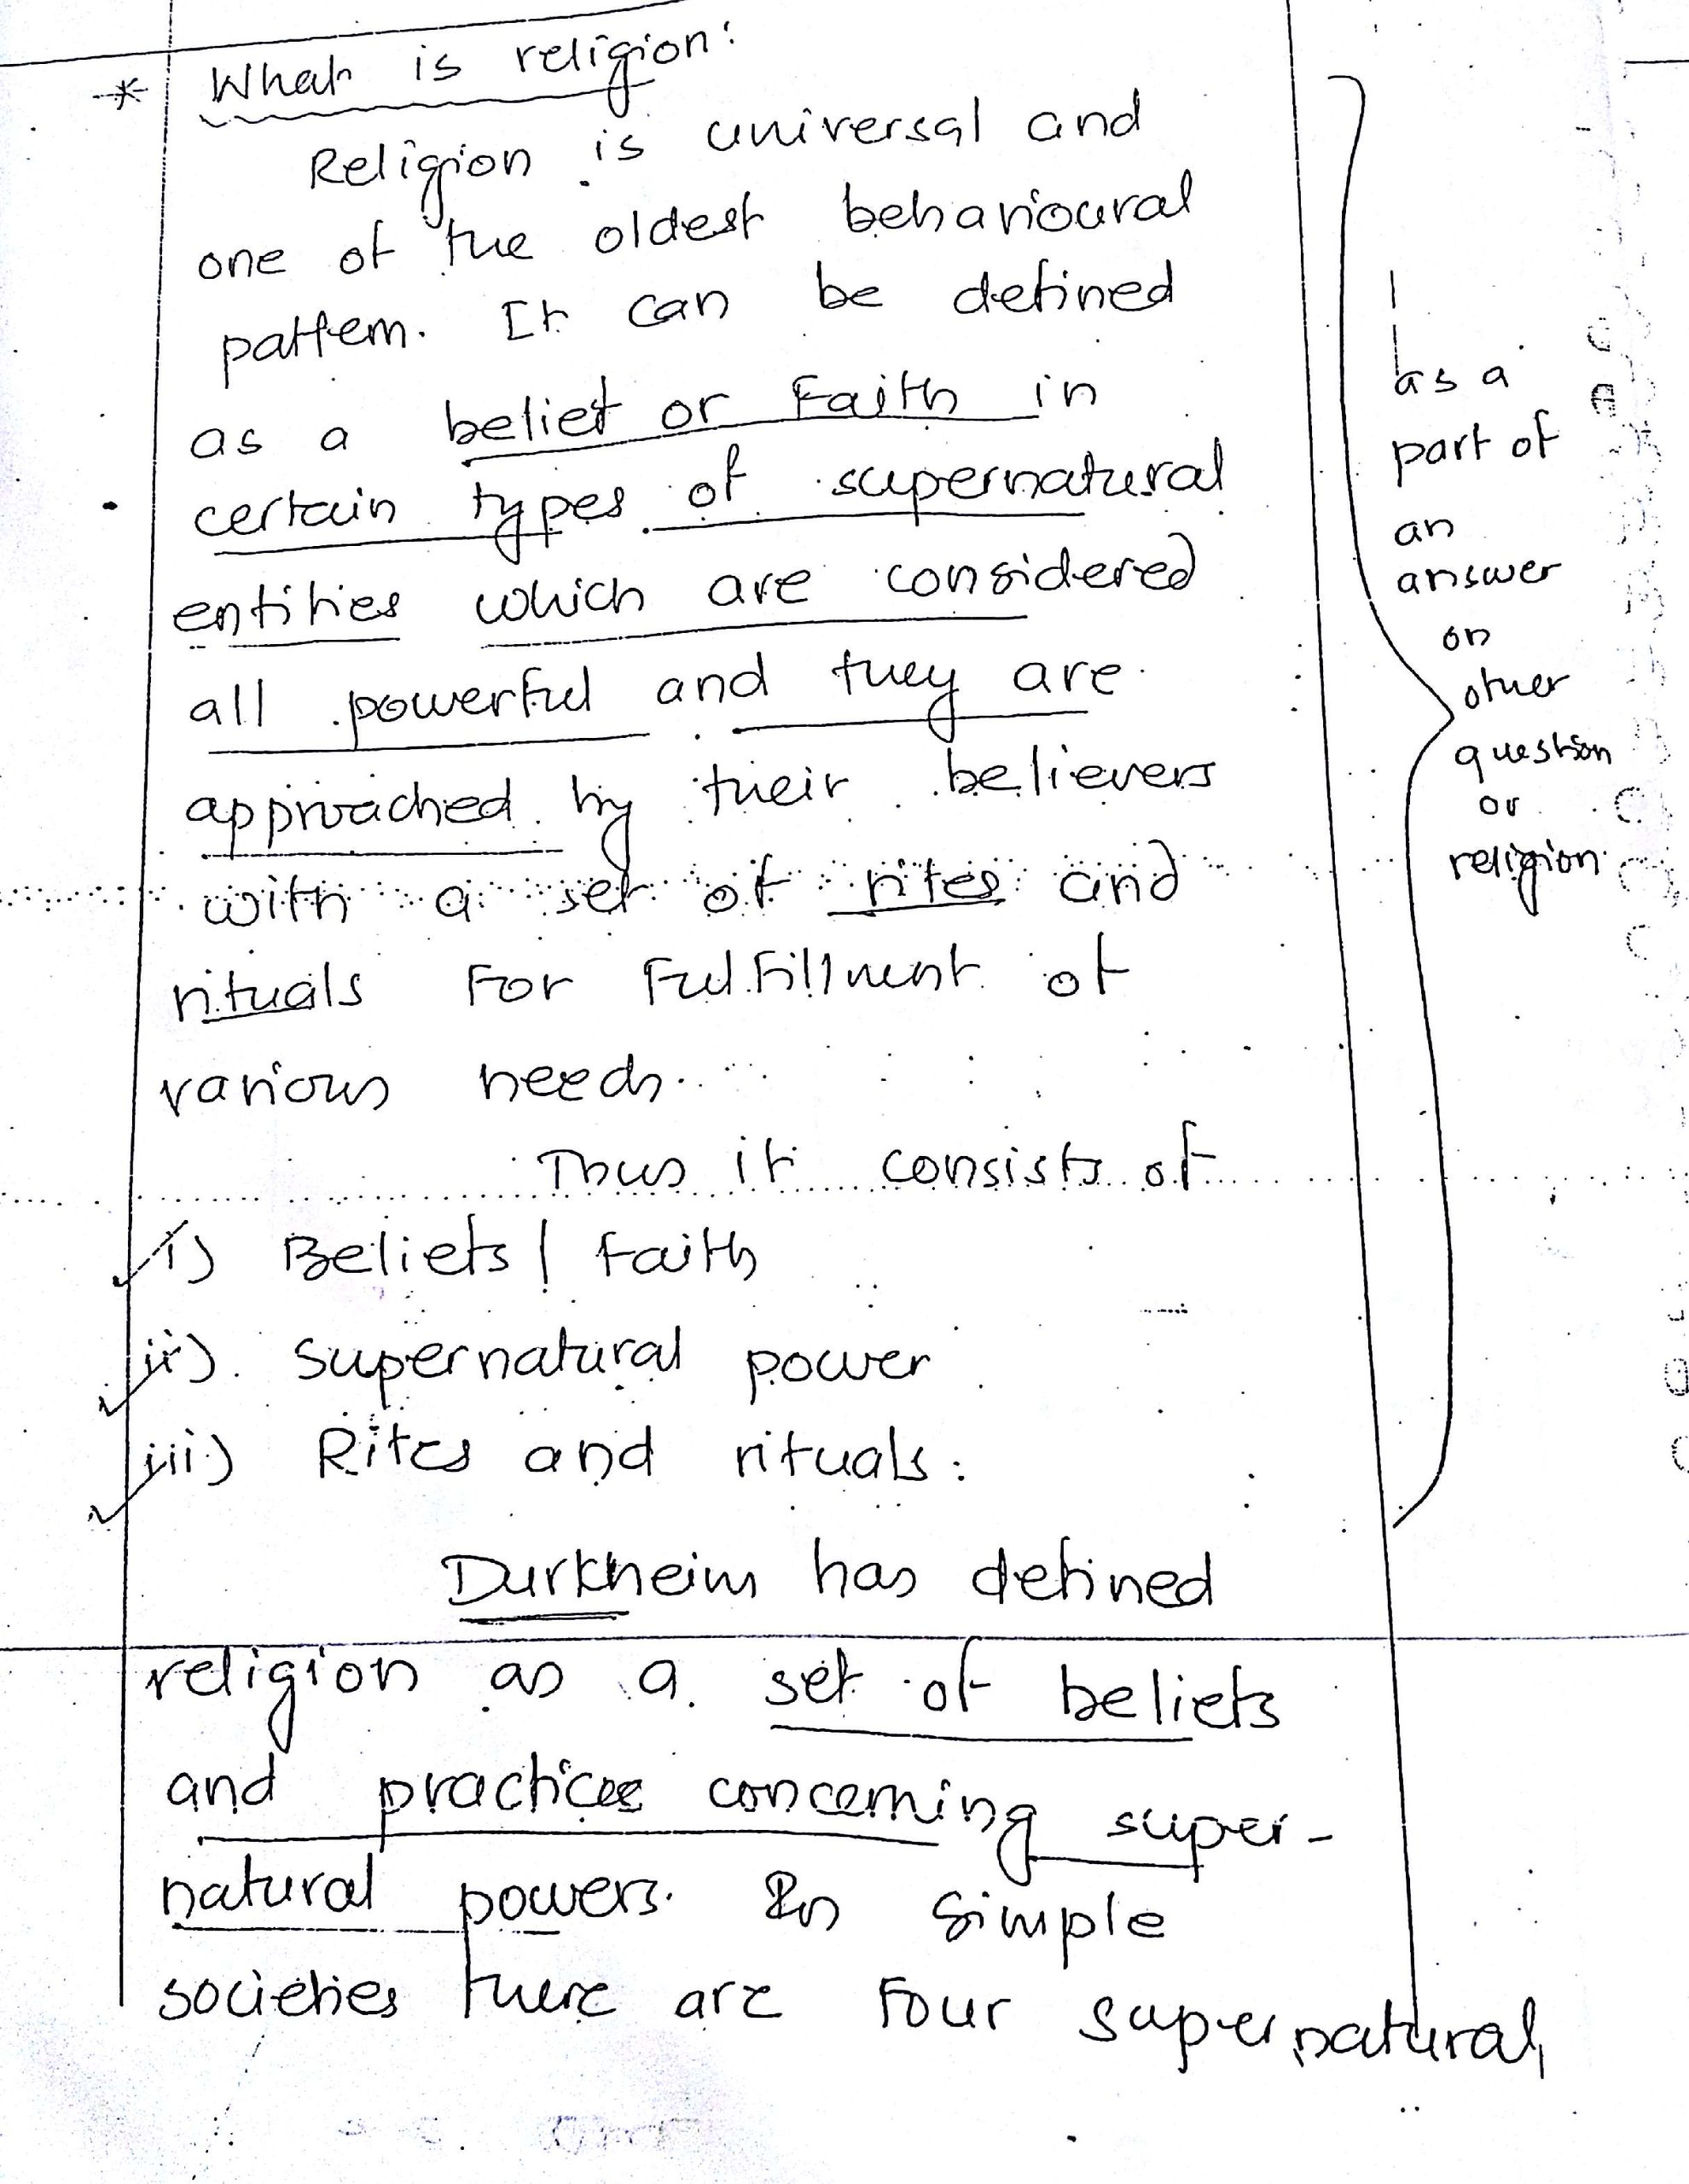 * What is religion:
Religion is universal and
one of the oldest behavioural
pattern. It can be defined
as a belief or Faith in
certain types of supernatural
entities which are considered
all powerful and they are
approached by their believers
with a set of rites and
rituals For Fulfillment of
various needs.
Thus it consists of
i) Beliefs / Faith
ii). Supernatural power
iii) Rites and rituals.
Durkheim has defined
religion as a set of beliefs
and practices concerning super-
natural powers. In simple
societies there are Four supernatural
as a
part of
an
answer
on
other
question
or
religion